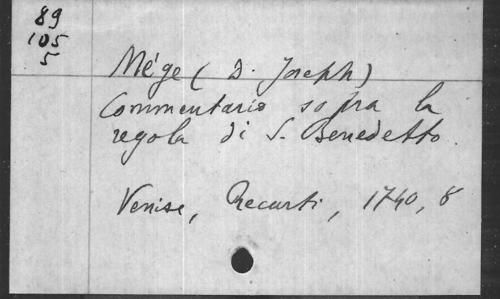 89
105
5
Mége (D. Joseph)
Commentario sopra la
regola di S. Benedetto.
Venise, Recurti, 1740, 8